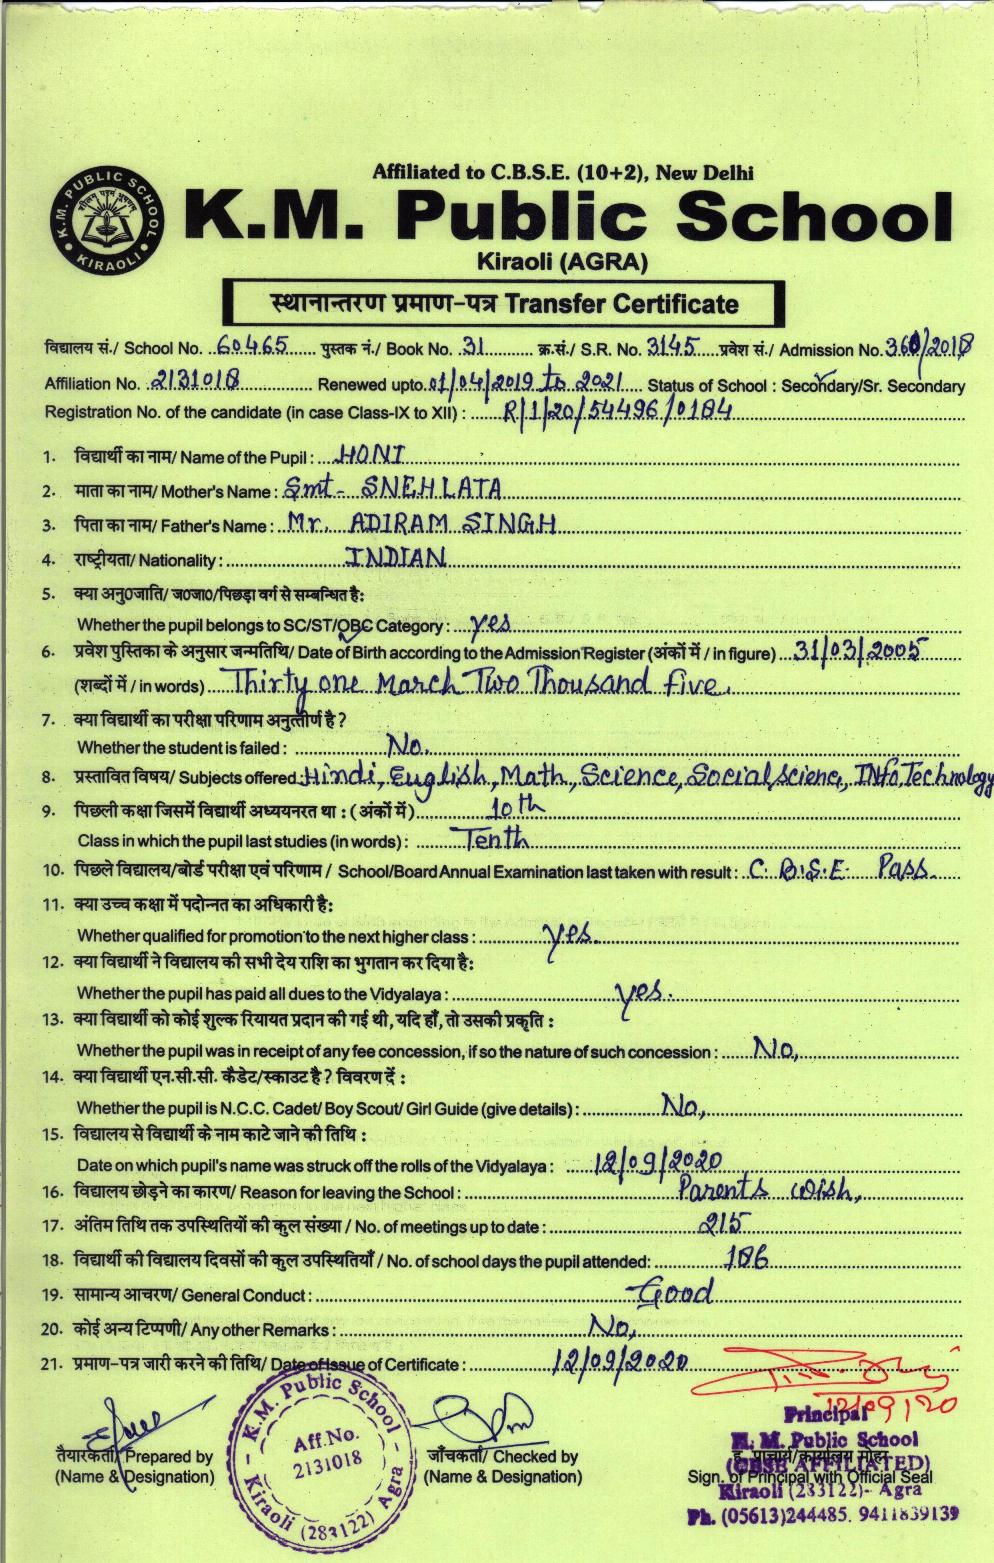 Affiliated to C.B.S.E. (10+2), New Delhi
K.M. PUBLIC SCHOOL
KIRAOLI
K.M. Public School
Kiraoli (AGRA)
स्थानान्तरण प्रमाण-पत्र Transfer Certificate
विद्यालय सं./ School No. 60465 पुस्तक नं./ Book No. 31 क्र.सं./ S.R. No. 3145 प्रवेश सं./ Admission No. 360/2018
Affiliation No. 2131018 Renewed upto 01/04/2019 to 2021 Status of School : Secondary/Sr. Secondary
Registration No. of the candidate (in case Class-IX to XII) : R/1/20/54496/0184
1. विद्यार्थी का नाम/ Name of the Pupil : HONI
2. माता का नाम/ Mother's Name : Smt- SNEHLATA
3. पिता का नाम/ Father's Name : Mr. ADIRAM SINGH
4. राष्ट्रीयता/ Nationality : INDIAN
5. क्या अनु0जाति/ ज0जा0/पिछड़ा वर्ग से सम्बन्धित है:
Whether the pupil belongs to SC/ST/OBC Category : yes
6. प्रवेश पुस्तिका के अनुसार जन्मतिथि/ Date of Birth according to the Admission Register (अंकों में / in figure) 31/03/2005
(शब्दों में / in words) Thirty one March Two Thousand five.
7. क्या विद्यार्थी का परीक्षा परिणाम अनुत्तीर्ण है ?
Whether the student is failed : No.
8. प्रस्तावित विषय/ Subjects offered : Hindi, English, Math, Science, Social science, INfo, Technology
9. पिछली कक्षा जिसमें विद्यार्थी अध्ययनरत था : (अंकों में) 10th
Class in which the pupil last studies (in words) : Tenth
10. पिछले विद्यालय/बोर्ड परीक्षा एवं परिणाम / School/Board Annual Examination last taken with result : C.B.S.E- Pass.
11. क्या उच्च कक्षा में पदोन्नत का अधिकारी है:
Whether qualified for promotion to the next higher class : yes.
12. क्या विद्यार्थी ने विद्यालय की सभी देय राशि का भुगतान कर दिया है:
Whether the pupil has paid all dues to the Vidyalaya : yes.
13. क्या विद्यार्थी को कोई शुल्क रियायत प्रदान की गई थी, यदि हाँ, तो उसकी प्रकृति :
Whether the pupil was in receipt of any fee concession, if so the nature of such concession : No,
14. क्या विद्यार्थी एन.सी.सी. कैडेट/स्काउट है ? विवरण दें :
Whether the pupil is N.C.C. Cadet/ Boy Scout/ Girl Guide (give details) : No,
15. विद्यालय से विद्यार्थी के नाम काटे जाने की तिथि :
Date on which pupil's name was struck off the rolls of the Vidyalaya : 12/09/2020
16. विद्यालय छोड़ने का कारण/ Reason for leaving the School : Parents wish,
17. अंतिम तिथि तक उपस्थितियों की कुल संख्या / No. of meetings up to date : 215
18. विद्यार्थी की विद्यालय दिवसों की कुल उपस्थितियाँ / No. of school days the pupil attended: 186
19. सामान्य आचरण/ General Conduct : Good
20. कोई अन्य टिप्पणी/ Any other Remarks : No,
21. प्रमाण-पत्र जारी करने की तिथि/ Date of Issue of Certificate : 12/09/2020
12/09/20
तैयारकर्ता/ Prepared by
(Name & Designation)
K.M. Public School
Aff.No.
2131018
Kiraoli (283122) Agra
जाँचकर्ता/ Checked by
(Name & Designation)
Principal
K. M. Public School
(CBSE AFFILIATED)
Sign. of Principal with Official Seal
Kiraoli (283122)- Agra
Ph. (05613)244485. 9411839139